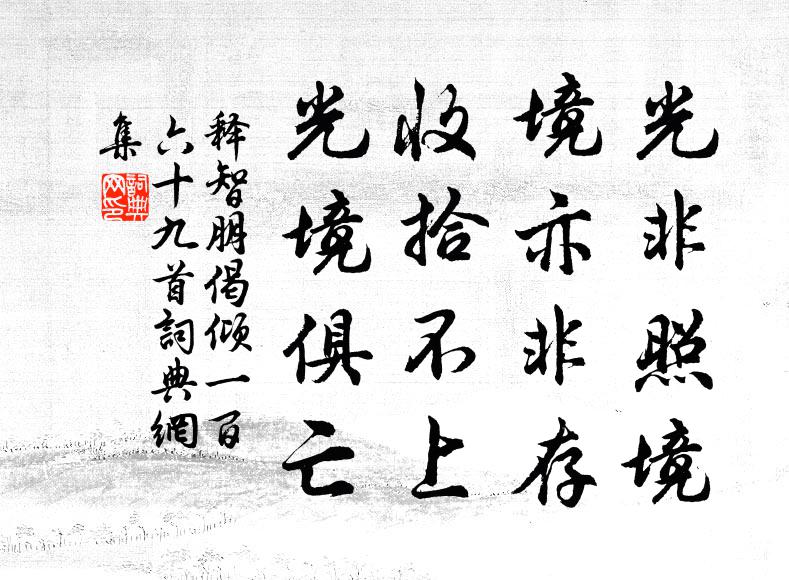 光非照境
境亦非存
收拾不上
光境俱亡
释智朋偈倾一百
六十九首詞典網
集
詞典
网印